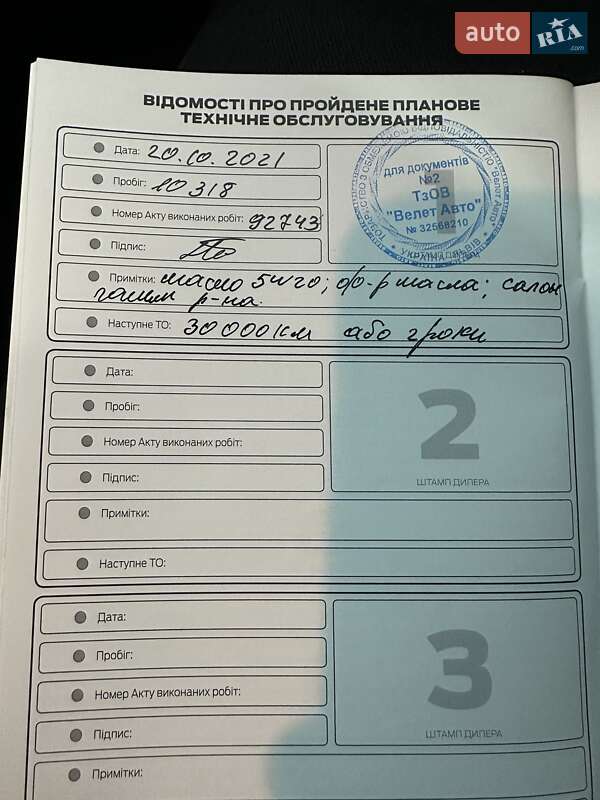 auto RIA .com
ВІДОМОСТІ ПРО ПРОЙДЕНЕ ПЛАНОВЕ
ТЕХНІЧНЕ ОБСЛУГОВУВАННЯ
Дата: 20.10.2021
Пробіг: 10318
Номер Акту виконаних робіт: 92743
Підпис:
для документів
№2
ТзОВ
"Велет Авто"
№ 32568210
УКРАЇНА ЛЬВІВ
Примітки: масло 5w20; ф-р масла; салон
р-на.
Наступне ТО: 30 000 км або 2 роки
Дата:
Пробіг:
Номер Акту виконаних робіт:
Підпис:
2
ШТАМП ДИЛЕРА
Примітки:
Наступне ТО:
Дата:
Пробіг:
Номер Акту виконаних робіт:
Підпис:
3
ШТАМП ДИЛЕРА
Примітки: